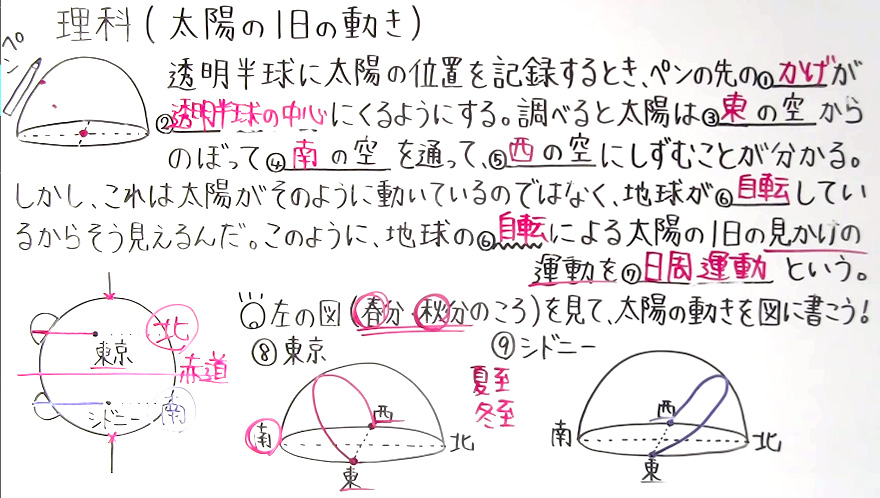 理科(太陽の1日の動き)
透明半球に太陽の位置を記録するとき、ペンの先の①かげが
②透明半球の中心にくるようにする。調べると太陽は③東の空から
のぼって④南の空を通って、⑤西の空にしずむことが分かる。
しかし、これは太陽がそのように動いているのではなく、地球が⑥自転してい
るからそう見えるんだ。このように、地球の⑥自転による太陽の1日の見かけの
運動を⑦日周運動という。
左の図(春分・秋分のころ)を見て、太陽の動きを図に書こう!
北
東京
赤道
シドニー
南
⑧東京
南
西
東
北
夏至
冬至
⑨シドニー
南
西
東
北